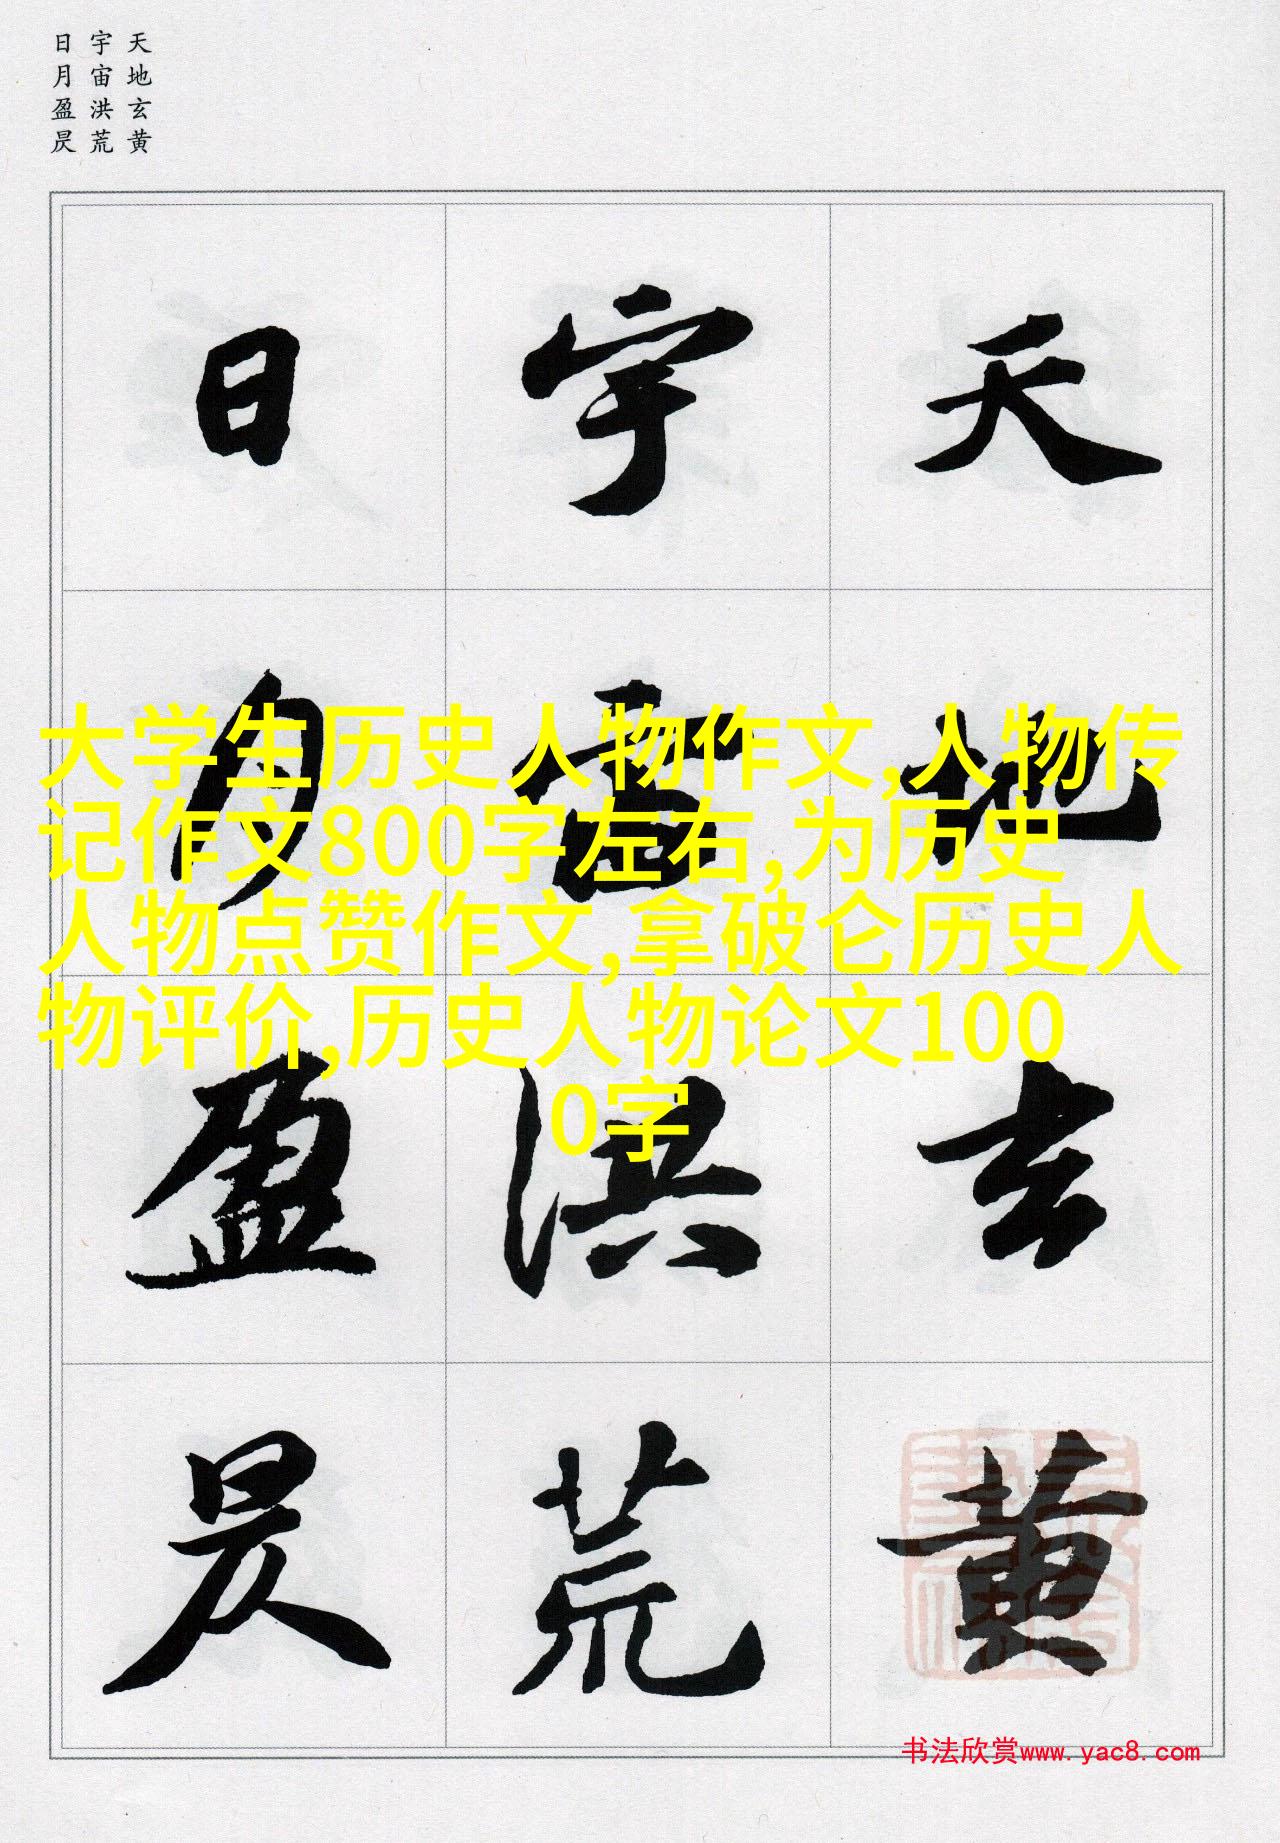 天地玄黄
宇宙洪荒
日月盈昃
天地玄黄
宇宙洪荒
日月盈昃
大学生历史人物作文,人物传
记作文800字左右,为历史
人物点赞作文,拿破仑历史人
物评价,历史人物论文100
0字
书法欣赏www.yac8.com